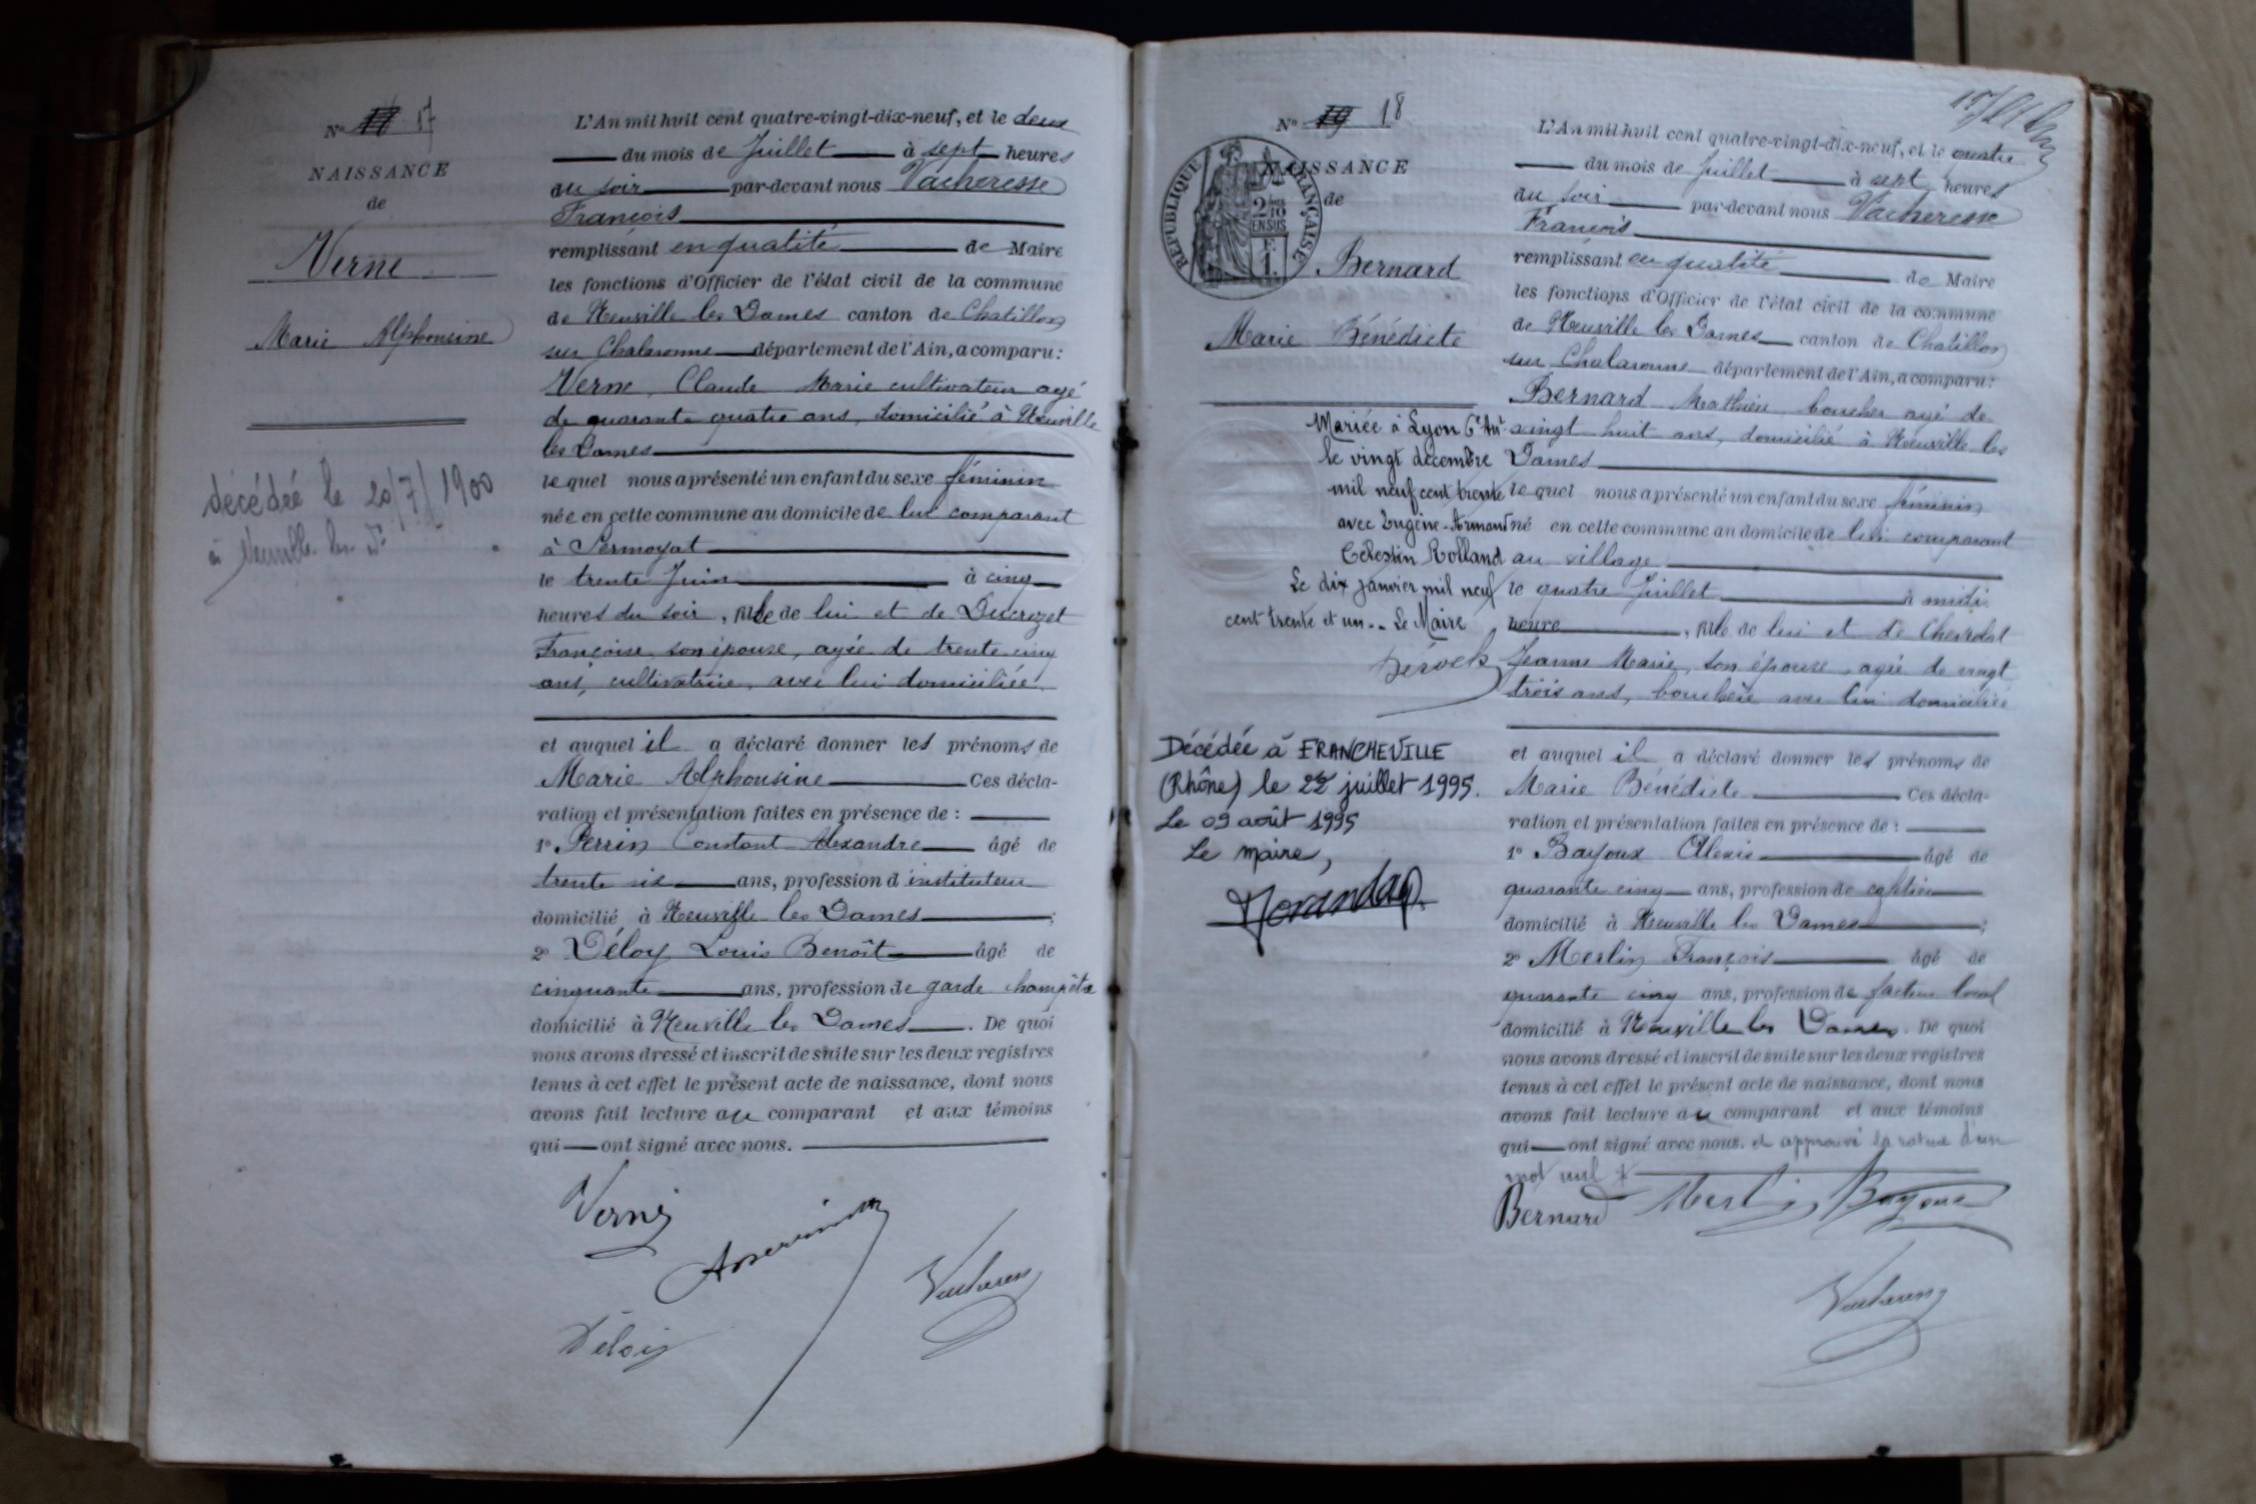 N° 17
NAISSANCE
de
Verne
Marie Alphonsine
décédée le 20/7/1900
à Neuville les D.
L'An mil huit cent quatre-vingt-dix-neuf, et le deux
du mois de Juillet à sept heures
du soir par-devant nous Vacheresse
François
remplissant en qualité de Maire
les fonctions d'Officier de l'état civil de la commune
de Neuville les Dames canton de Chatillon
sur Chalaronne département de l'Ain, a comparu :
Verne Claude Marie cultivateur agé
de quarante quatre ans, domicilié à Neuville
les Dames
lequel nous a présenté un enfant du sexe féminin
née en cette commune au domicile de lui comparant
à Sermoyat
le trente Juin à cinq
heures du soir, fille de lui et de Ducrozet
Françoise, son épouse, agée de trente cinq
ans, cultivatrice, avec lui domiciliée
et auquel il a déclaré donner les prénoms de
Marie Alphonsine Ces décla-
ration et présentation faites en présence de :
1° Perrin Constant Alexandre âgé de
trente six ans, profession d'instituteur
domicilié à Neuville les Dames ;
2° Déloy Louis Benoît âgé de
cinquante ans, profession de garde champêtre
domicilié à Neuville les Dames. De quoi
nous avons dressé et inscrit de suite sur les deux registres
tenus à cet effet le présent acte de naissance, dont nous
avons fait lecture au comparant et aux témoins
qui ont signé avec nous.
Verne
Déloy
N° 19 18
NAISSANCE
de
RÉPUBLIQUE FRANÇAISE
2/10 EN SUS
F. 1.
Bernard
Marie Bénédicte
Mariée à Lyon 6e Arrt
le vingt décembre
mil neuf cent trente
avec Eugène-Armand
Célestin Rolland
Le dix janvier mil neuf
cent trente et un.. Le Maire
Décédée à FRANCHEVILLE
(Rhône) le 22 juillet 1995.
Le 09 août 1995
Le maire,
L'An mil huit cent quatre-vingt-dix-neuf, et le quatre
du mois de Juillet à sept heures
du soir par-devant nous Vacheresse
François
remplissant en qualité de Maire
les fonctions d'Officier de l'état civil de la commune
de Neuville les Dames canton de Chatillon
sur Chalaronne département de l'Ain, a comparu :
Bernard Mathieu boucher agé de
vingt huit ans, domicilié à Neuville les
Dames
lequel nous a présenté un enfant du sexe féminin
né en cette commune au domicile de lui comparant
au village
le quatre Juillet à midi
heure, fille de lui et de
Jeanne Marie, son épouse, agée de vingt
trois ans, bouchère avec lui domiciliée
et auquel il a déclaré donner les prénoms de
Marie Bénédicte Ces décla-
ration et présentation faites en présence de :
1° Bayoux Alexis âgé de
quarante cinq ans, profession de cafetier
domicilié à Neuville les Dames ;
2° Merlin François âgé de
quarante cinq ans, profession de facteur local
domicilié à Neuville les Dames. De quoi
nous avons dressé et inscrit de suite sur les deux registres
tenus à cet effet le présent acte de naissance, dont nous
avons fait lecture au comparant et aux témoins
qui ont signé avec nous. et approuvé la rature d'un
mot nul
Bernard Merlin Bayoux